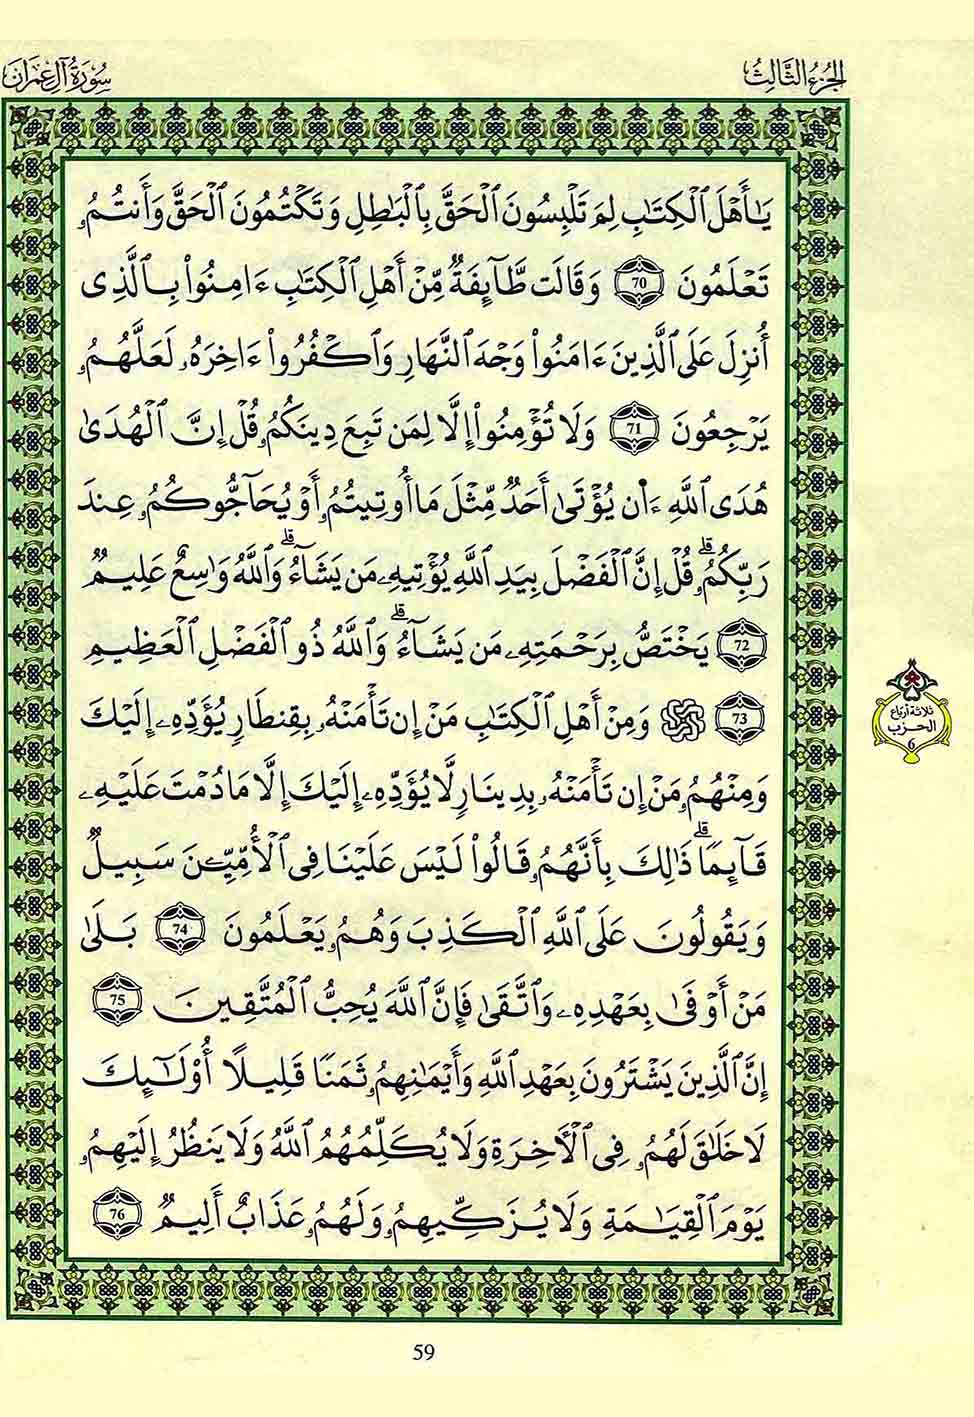 الجزء الثالث
سورة آل عمران
يَٰأَهْلَ اَ۬لْكِتَٰبِ لِمَ تَلْبِسُونَ اَ۬لْحَقَّ بِالْبَٰطِلِ وَتَكْتُمُونَ اَ۬لْحَقَّ وَأَنتُمُۥ
تَعْلَمُونَ 70 وَقَالَت طَّآئِفَةٞ مِّنْ أَهْلِ اِ۬لْكِتَٰبِ ءَامِنُواْ بِالَّذِى
أُنزِلَ عَلَى اَ۬لَّذِينَ ءَامَنُواْ وَجْهَ اَ۬لنَّهَارِ وَاَكْفُرُواْ ءَاخِرَهُۥ لَعَلَّهُمُۥ
يَرْجِعُونَ 71 وَلَا تُؤْمِنُواْ إِلَّا لِمَن تَبِعَ دِينَكُمُۥ قُلْ إِنَّ اَ۬لْهُدَىٰ
هُدَى اَ۬للَّهِ ءَا۬ن يُؤْتَىٰ أَحَدٞ مِّثْلَ مَا أُوتِيتُمُۥ أَوْ يُحَآجُّوكُمُۥ عِندَ
رَبِّكُمُۥۗ قُلْ إِنَّ اَ۬لْفَضْلَ بِيَدِ اِ۬للَّهِ يُؤْتِيهِۦ مَن يَشَآءُۗ وَاللَّهُ وَٰسِعٌ عَلِيمٞ
72 يَخْتَصُّ بِرَحْمَتِهِۦ مَن يَشَآءُۗ وَاللَّهُ ذُو اُ۬لْفَضْلِ اِ۬لْعَظِيمِ
73 وَمِنْ أَهْلِ اِ۬لْكِتَٰبِ مَنْ إِن تَأْمَنْهُۥ بِقِنطَارٖ يُؤَدِّهِۦ إِلَيْكَ
وَمِنْهُمُۥ مَنْ إِن تَأْمَنْهُۥ بِدِينَارٖ لَّا يُؤَدِّهِۦ إِلَيْكَ إِلَّا مَا دُمْتَ عَلَيْهِۦ
قَآئِماٗۗ ذَٰلِكَ بِأَنَّهُمُۥ قَالُواْ لَيْسَ عَلَيْنَا فِى اِ۬لْأُمِّيِّـۧنَ سَبِيلٞ
وَيَقُولُونَ عَلَى اَ۬للَّهِ اِ۬لْكَذِبَ وَهُمُۥ يَعْلَمُونَ 74 بَلَىٰ
مَنْ أَوْفَىٰ بِعَهْدِهِۦ وَاتَّقَىٰ فَإِنَّ اَ۬للَّهَ يُحِبُّ اُ۬لْمُتَّقِينَ 75
إِنَّ اَ۬لَّذِينَ يَشْتَرُونَ بِعَهْدِ اِ۬للَّهِ وَأَيْمَٰنِهِمُۥ ثَمَناٗ قَلِيلًا أُوْلَٰٓئِكَ
لَا خَلَٰقَ لَهُمُۥ فِى اِ۬لْأٓخِرَةِ وَلَا يُكَلِّمُهُمُ اُ۬للَّهُ وَلَا يَنظُرُ إِلَيْهِمُۥ
يَوْمَ اَ۬لْقِيَٰمَةِ وَلَا يُزَكِّيهِمُۥ وَلَهُمُۥ عَذَابٌ أَلِيمٞ 76
ثلاثة أرباع
الحزب
6
59